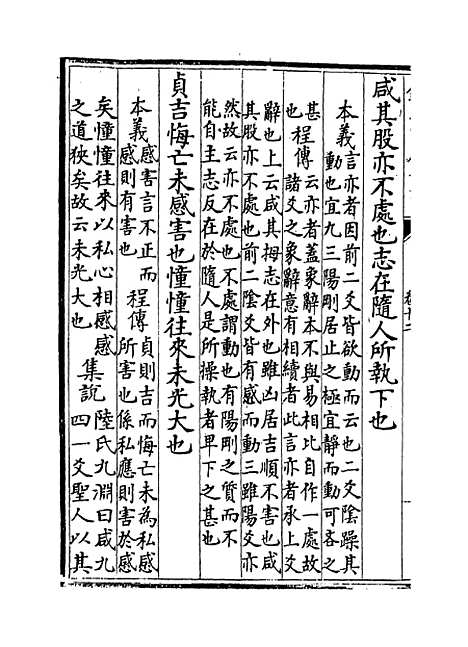 卷十二
咸其股亦不處也志在隨人所執下也
本義
言亦者因前二爻皆欲動而云也二爻陰躁其
動也宜九三陽剛居止之極宜靜而動可吝之
甚
也
程傳
云亦者蓋象辭本不與易相比自作一處故
諸爻之象辭意有相續者此言亦者承上爻
辭也上云咸其拇志在外也雖凶居吉順不害也咸
其股亦不處也前二陰爻皆有感而動三雖陽爻亦
然故云亦不處也不處謂動也有陽剛之質而不
能自主志反在於隨人是所操執者卑下之甚也
貞吉悔亡未感害也憧憧往來未光大也
本義
感害言不正而
感則有害也
程傳
貞則吉而悔亡未為私感
所害也係私應則害於感
矣憧憧往來以私心相感感
之道狹矣故云未光大也
集說
陸氏九淵曰咸九
四一爻聖人以其